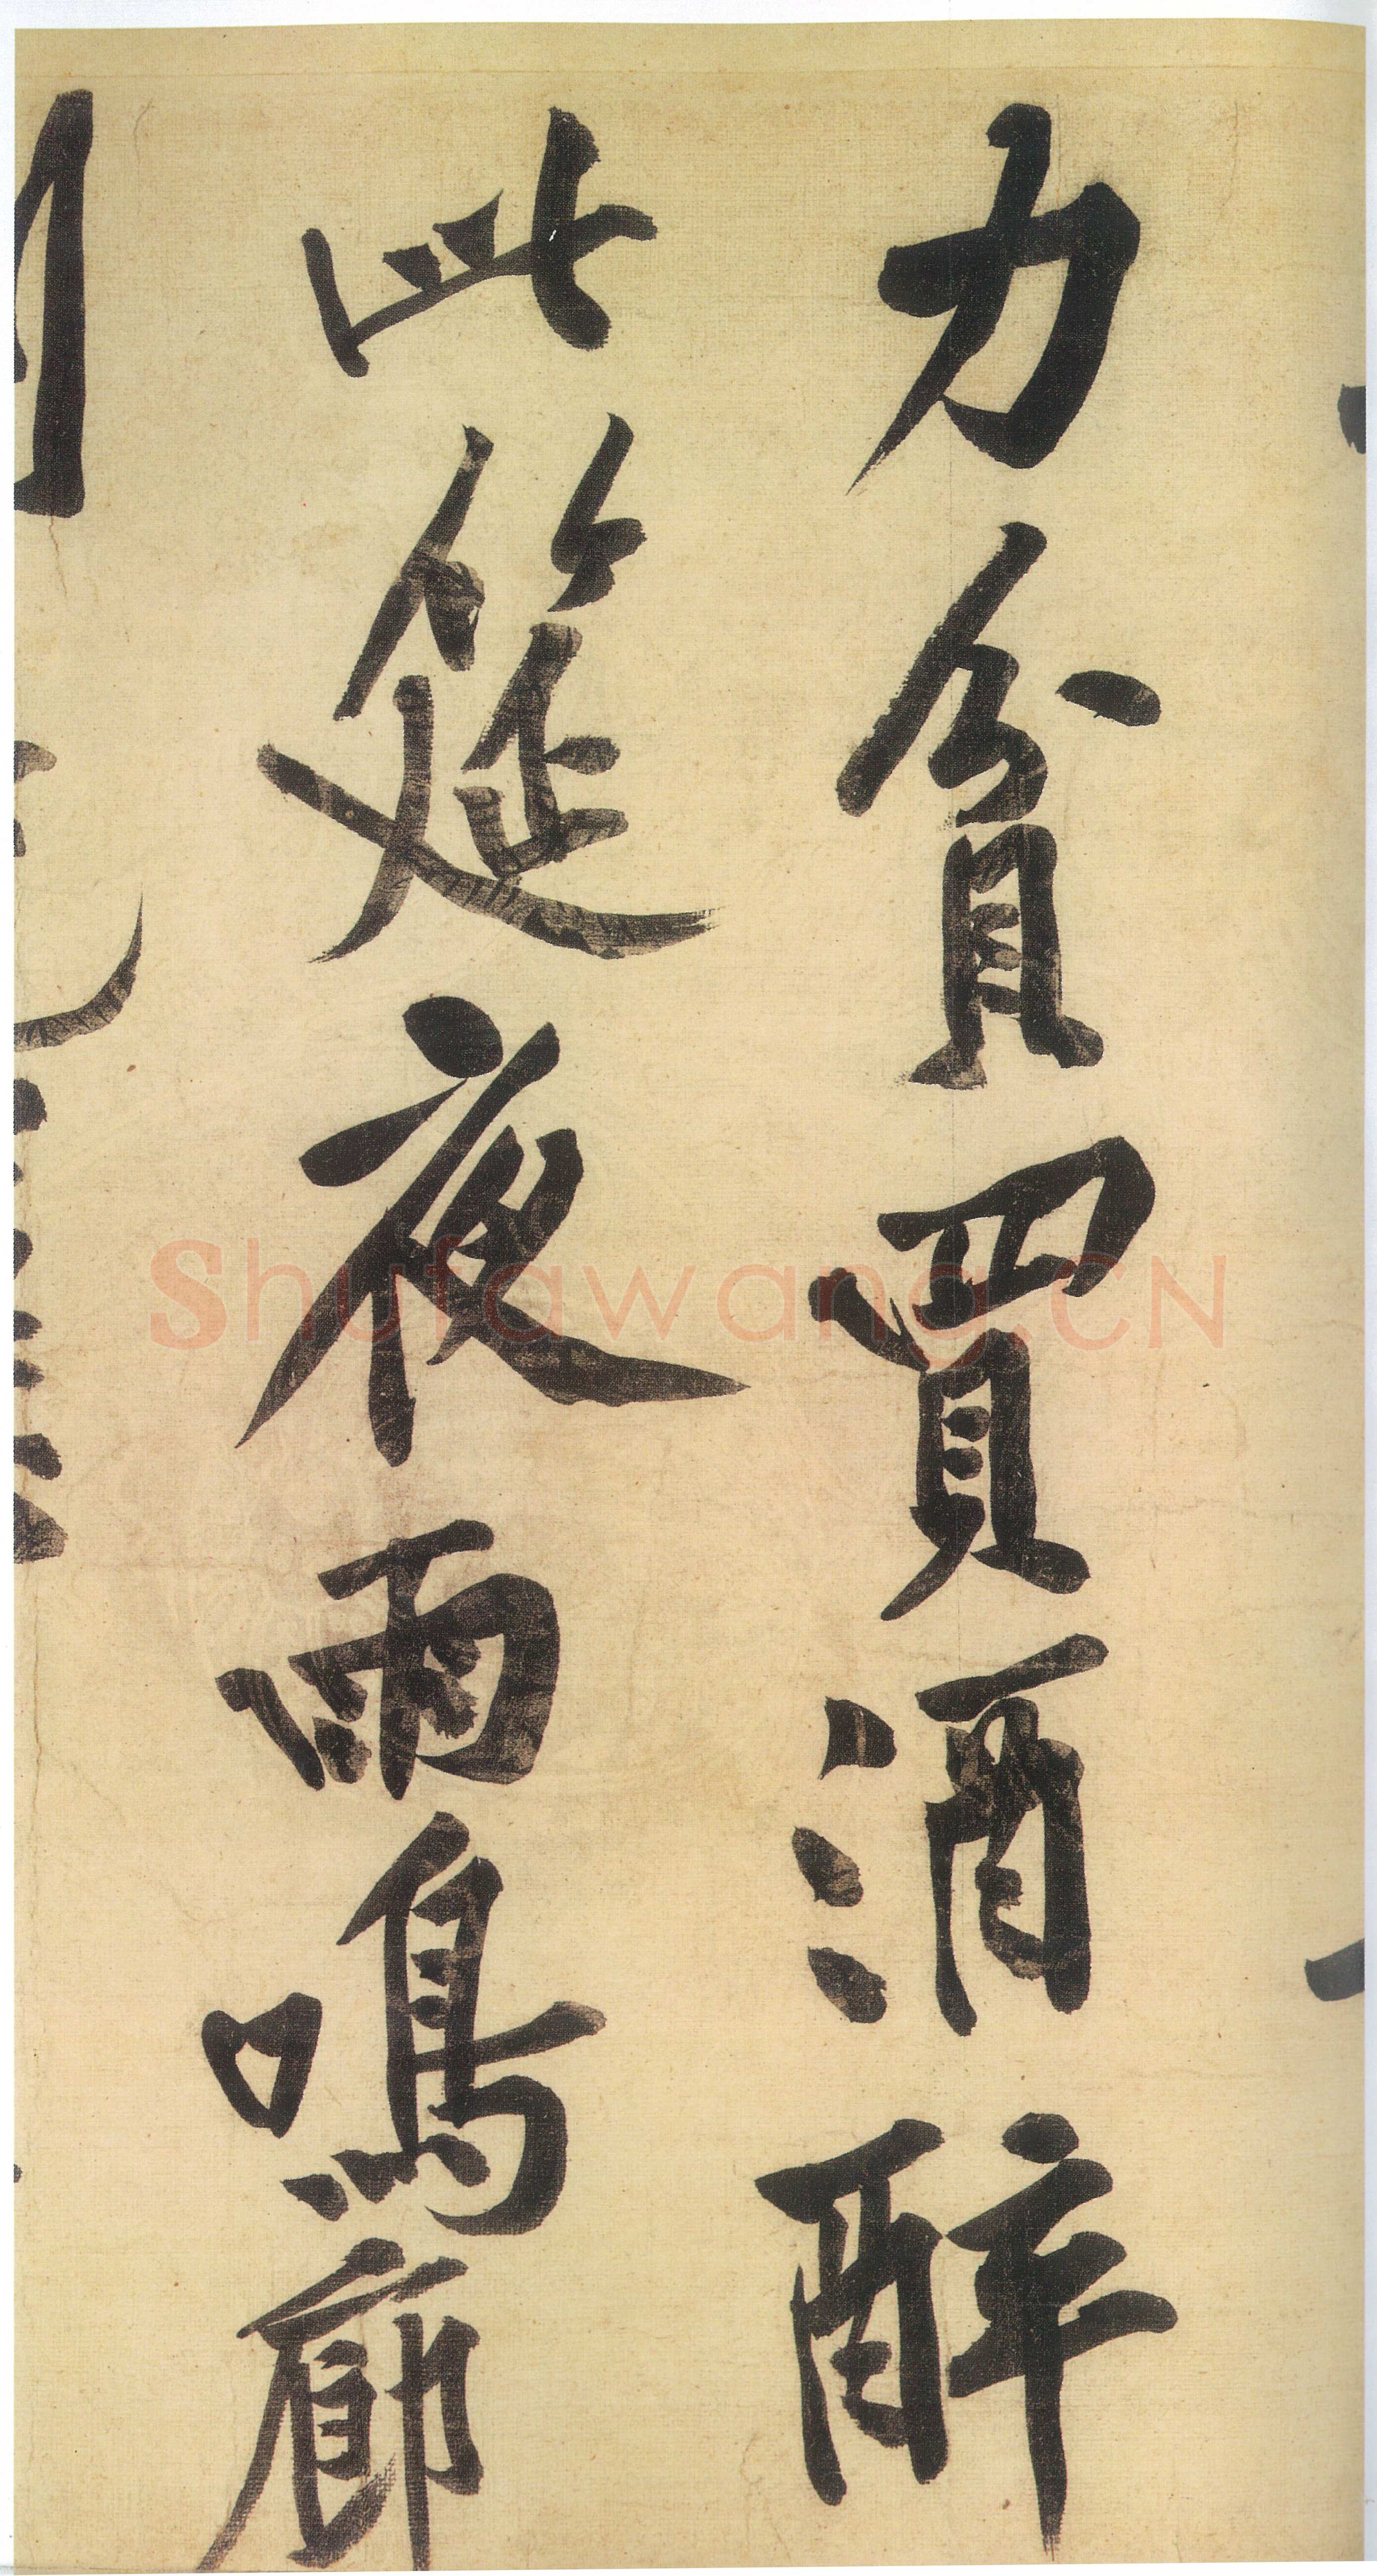 力貧買酒醉
此筵夜雨鳴廊
Shufawang.CN